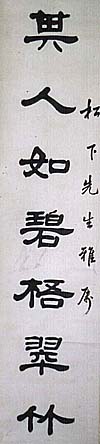 松下先生雅属
其人如碧梧翠竹